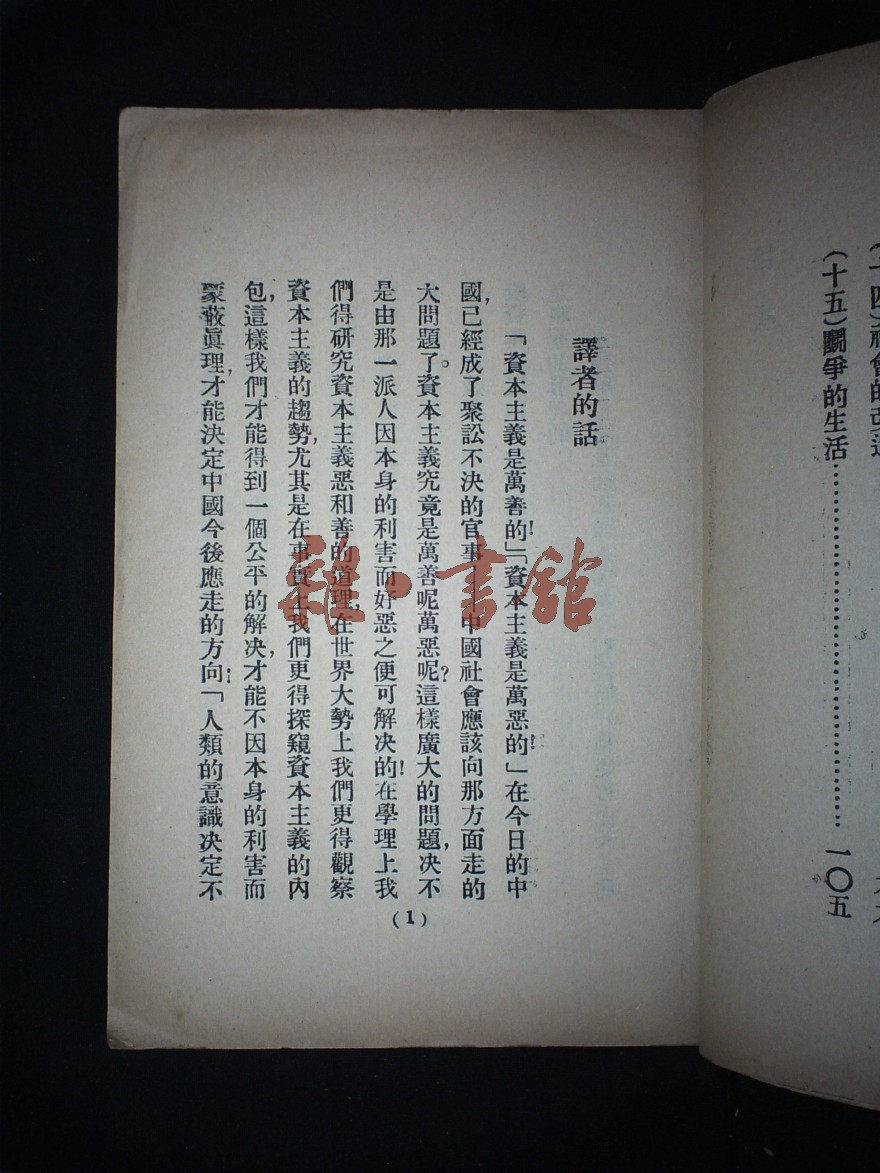 (十四)社會的
(十五)鬭爭的生活……………………一〇五
譯者的話
「資本主義是萬善的!」「資本主義是萬惡的!」在今日的中
國,已經成了聚訟不決的官事,中國社會應該向那方面走的
大問題了。資本主義究竟是萬善呢萬惡呢?這樣廣大的問題,决不
是由那一派人因本身的利害而好惡之便可解决的!在學理上我
們得研究資本主義惡和善的道理,在世界大勢上我們更得觀察
資本主義的趨勢,尤其是在事實上我們更得探窺資本主義的內
包,這樣我們才能得到一個公平的解决,才能不因本身的利害而
蒙蔽眞理,才能決定中國今後應走的方向!「人類的意識决定不
(1)
雜·書館